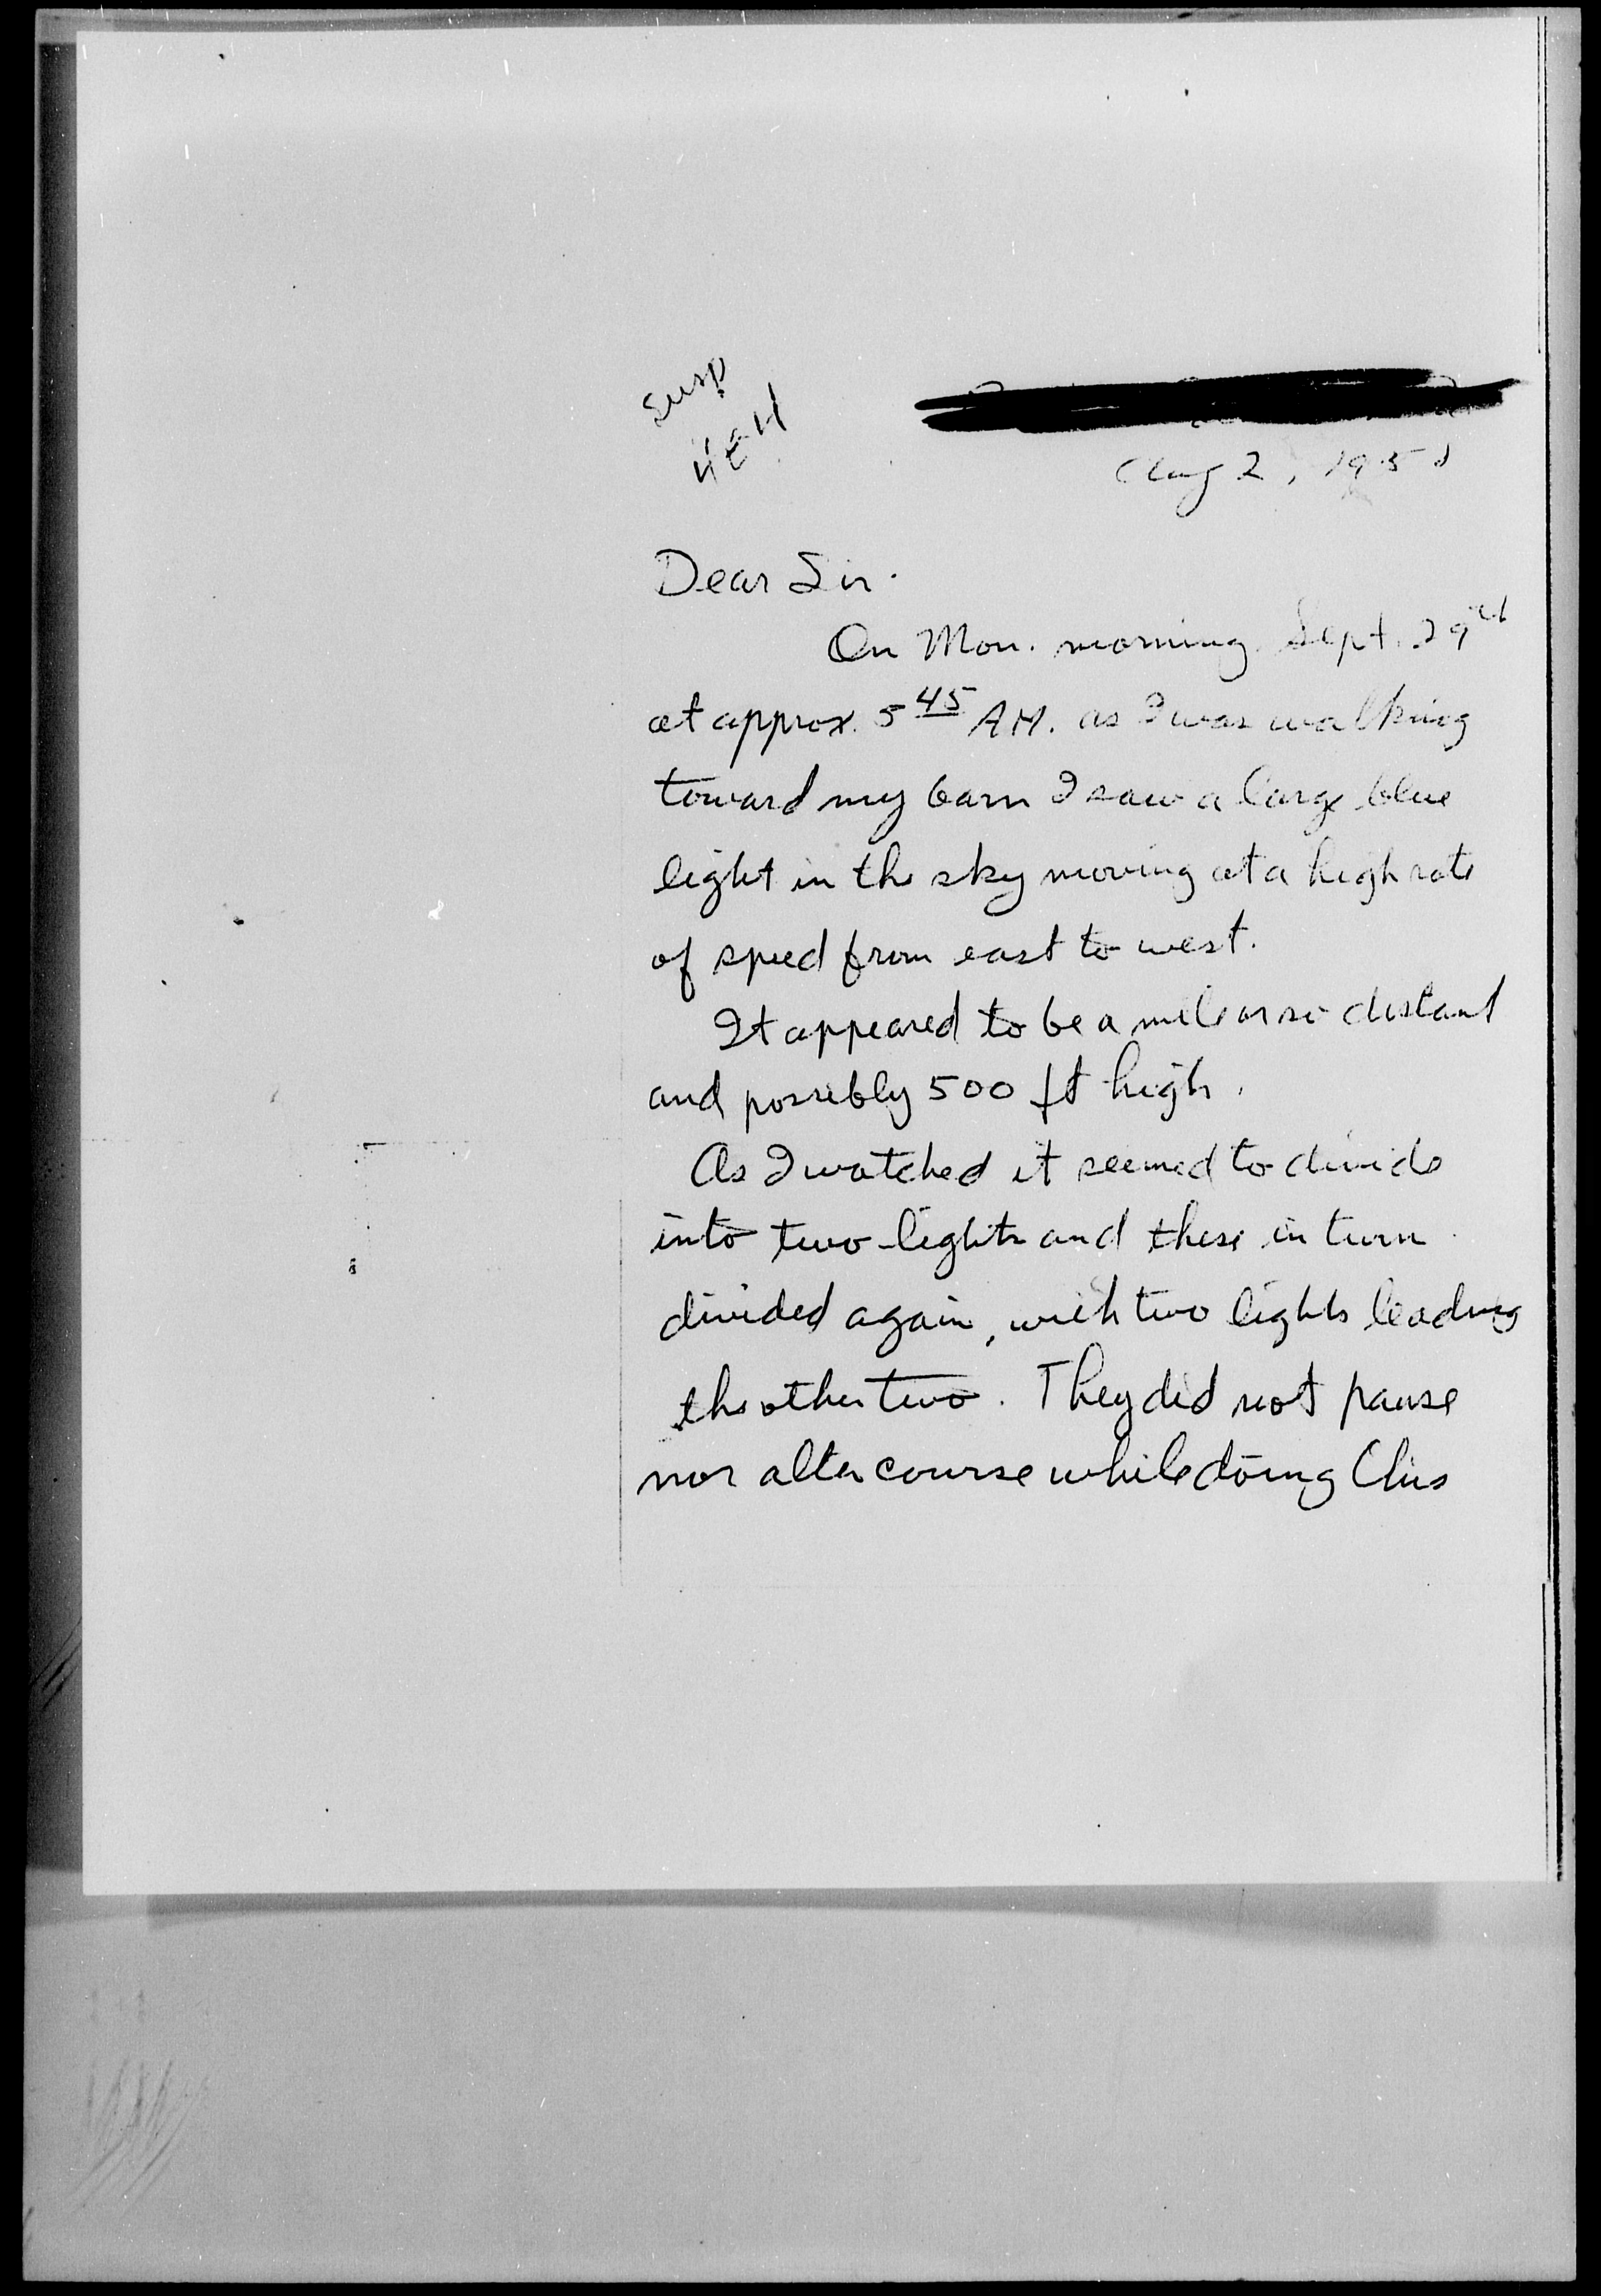 Susp
Aug 2, 195
Dear Sir.
On Mon. morning Sept. 29
at approx. 5 45 AM. as I was walking
toward my barn I saw a large blue
light in the sky moving at a high rate
of speed from east to west.
It appeared to be a mile or so distant
and possibly 500 ft high.
As I watched it seemed to divide
into two lights and these in turn
divided again, with two lights leading
the other two. They did not pause
nor alter course while doing this